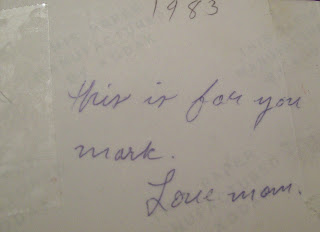 1983
this is for you
mark.
Love mom.